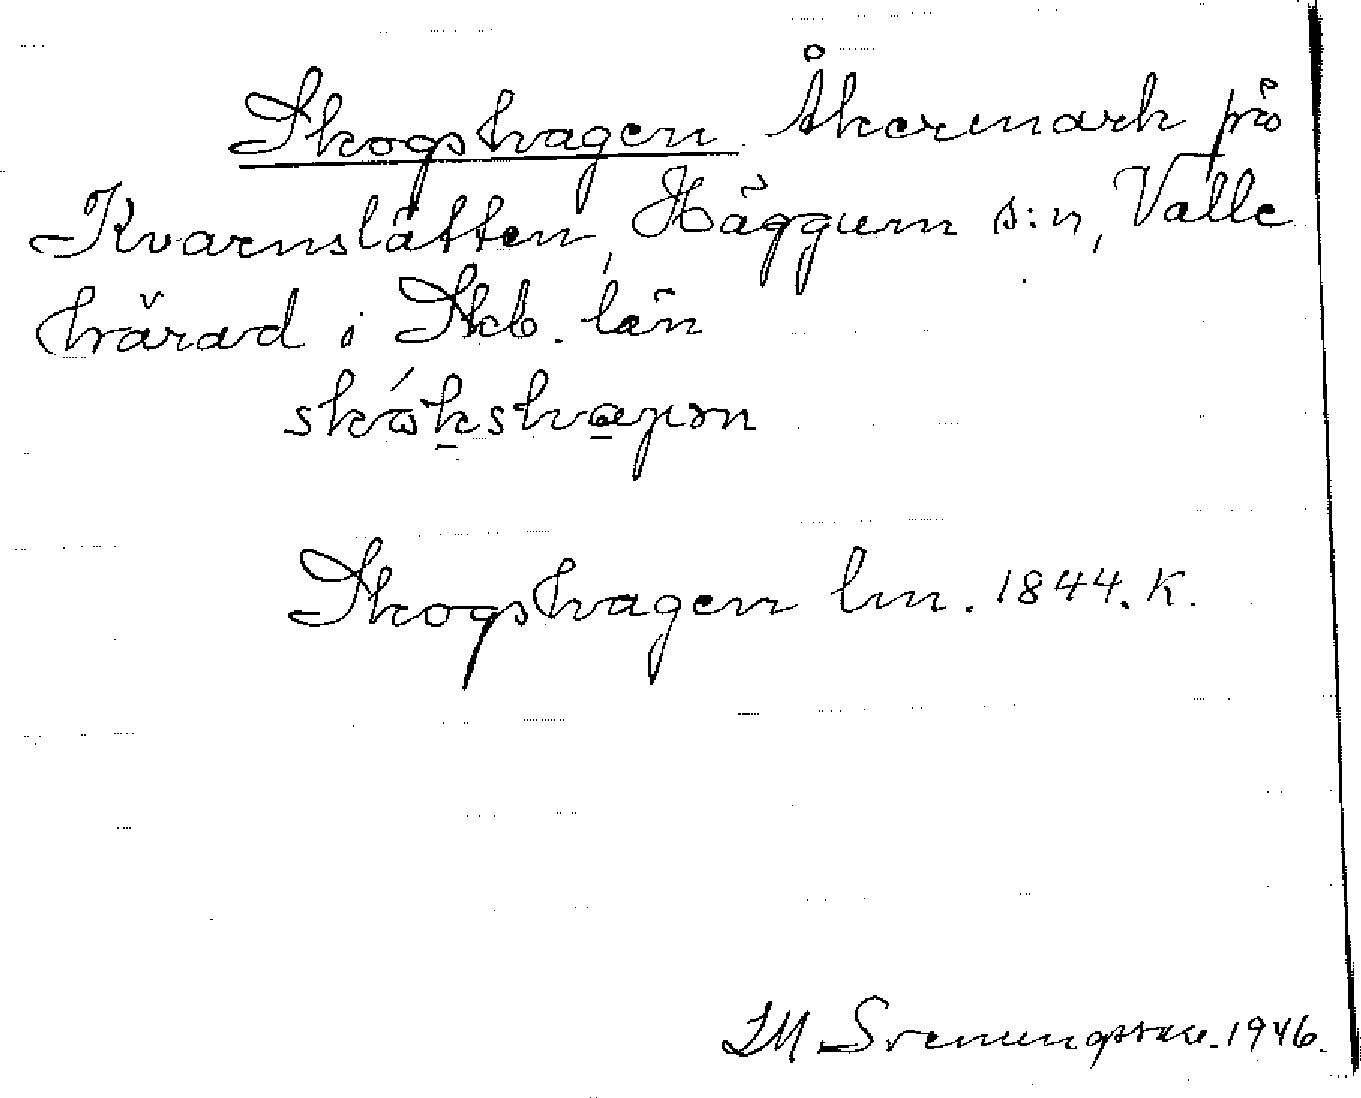 Skogshagen. Åkermark på
Kvarnslätten, Häggum s:n, Valle
härad i Skb. län
Skogshagen lm. 1844. K.
I M Svenungsson. 1946.